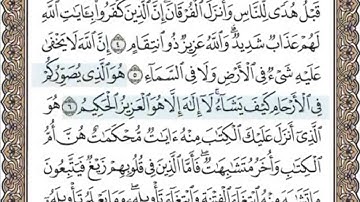 قَبْلُ هُدًى لِّلنَّاسِ وَأَنزَلَ ٱلْفُرْقَانَ إِنَّ ٱلَّذِينَ كَفَرُوا۟ بِـَٔايَٰتِ ٱللَّهِ
لَهُمْ عَذَابٌ شَدِيدٌ وَٱللَّهُ عَزِيزٌ ذُو ٱنتِقَامٍ ٤ إِنَّ ٱللَّهَ لَا يَخْفَىٰ
عَلَيْهِ شَىْءٌ فِى ٱلْأَرْضِ وَلَا فِى ٱلسَّمَآءِ ٥ هُوَ ٱلَّذِى يُصَوِّرُكُمْ
فِى ٱلْأَرْحَامِ كَيْفَ يَشَآءُ لَآ إِلَٰهَ إِلَّا هُوَ ٱلْعَزِيزُ ٱلْحَكِيمُ ٦ هُوَ
ٱلَّذِىٓ أَنزَلَ عَلَيْكَ ٱلْكِتَٰبَ مِنْهُ ءَايَٰتٌ مُّحْكَمَٰتٌ هُنَّ أُمُّ
ٱلْكِتَٰبِ وَأُخَرُ مُتَشَٰبِهَٰتٌ فَأَمَّا ٱلَّذِينَ فِى قُلُوبِهِمْ زَيْغٌ فَيَتَّبِعُونَ
مَا تَشَٰبَهَ مِنْهُ ٱبْتِغَآءَ ٱلْفِتْنَةِ وَٱبْتِغَآءَ تَأْوِيلِهِۦ وَمَا يَعْلَمُ تَأْوِيلَهُۥٓ